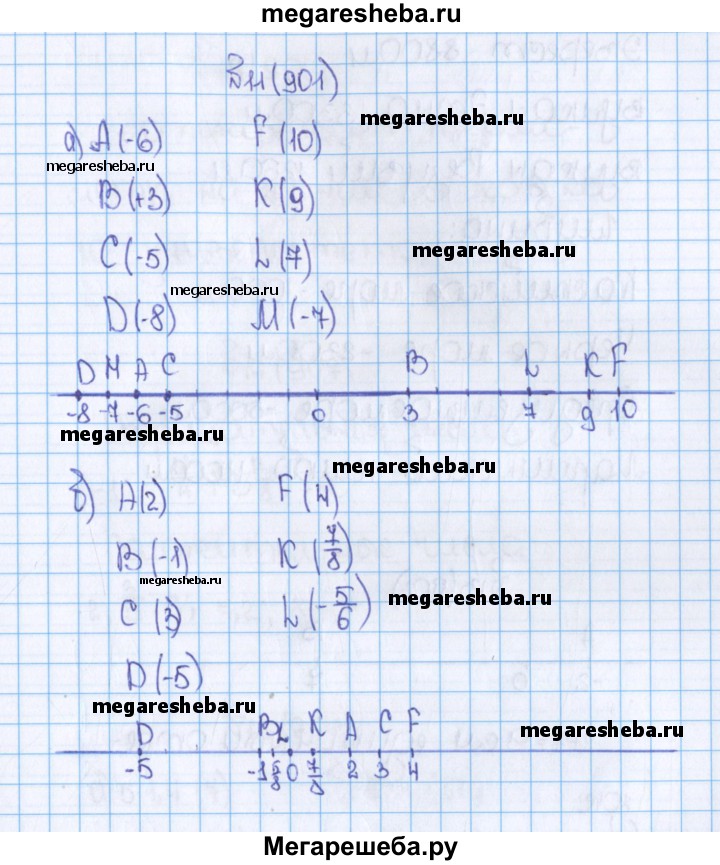 megaresheba.ru
3.11 (901)
а) A(-6) F(10)
megaresheba.ru
megaresheba.ru
B(+3) K(9)
C(-5) L(7)
megaresheba.ru
megaresheba.ru
D(-8) M(-7)
D M A C B L K F
-8 -7 -6 -5 0 3 7 9 10
megaresheba.ru
megaresheba.ru
б) A(2) F(4)
B(-1) K(7/8)
megaresheba.ru
megaresheba.ru
C(3) L(-5/6)
D(-5)
megaresheba.ru
megaresheba.ru
D B L K A C F
-5 -1 0 7/8 2 3 4
Мегарешеба.ру